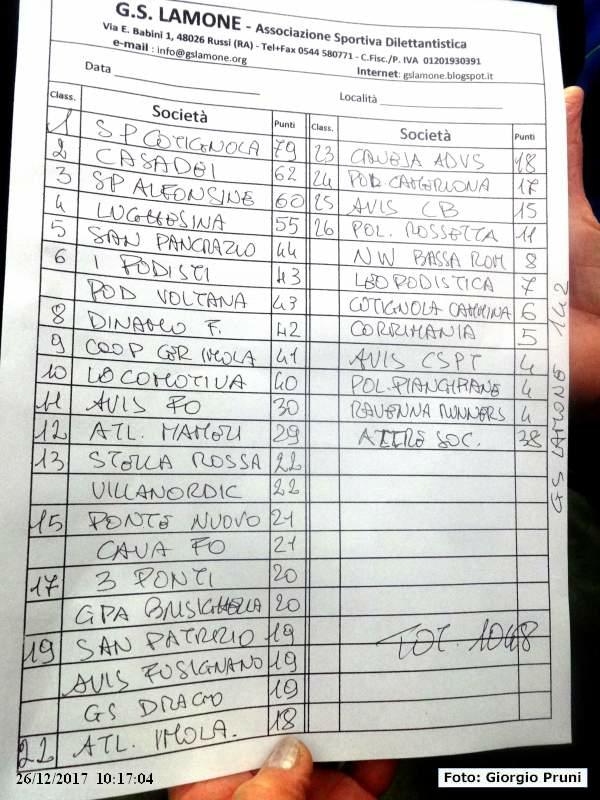 G.S. LAMONE - Associazione Sportiva Dilettantistica
Via E. Babini 1, 48026 Russi (RA) - Tel+Fax 0544 580771 - C.Fisc./P. IVA 01201930391
e-mail : info@gslamone.org Internet: gslamone.blogspot.it
Data Località
Class. Società Punti
1 SP COTIGNOLA 79
2 CASADEI 62
3 SP ALFONSINE 60
4 LUGHESINA 55
5 SAN PANCRAZIO 44
6 I PODISTI 43
POD VOLTANA 43
8 DINAMO F. 42
9 COOP CER IMOLA 41
10 LOCOMOTIVA 40
11 AVIS FO 30
12 ATL. MAMELI 29
13 STELLA ROSSA 22
VILLANORDIC 22
15 PONTE NUOVO 21
CAVA FO 21
17 3 PONTI 20
GPA BRISIGHELLA 20
19 SAN PATRIZIO 19
AVIS FUSIGNANO 19
GS DRAGO 19
22 ATL. IMOLA. 18
Class. Società Punti
23 ADVS 18
24 POD. 17
25 AVIS CB 15
26 POL. ROSSETTA 11
NW BASSA ROM 8
LEOPODISTICA 7
COTIGNOLA CAMMINA 6
CORRIMANIA 5
AVIS CSPT 4
POL. PIANGIPANE 4
RAVENNA RUNNERS 4
ALTRE SOC. 38
TOT. 1048
GS LAMONE 142
26/12/2017 10:17:04
Foto: Giorgio Pruni